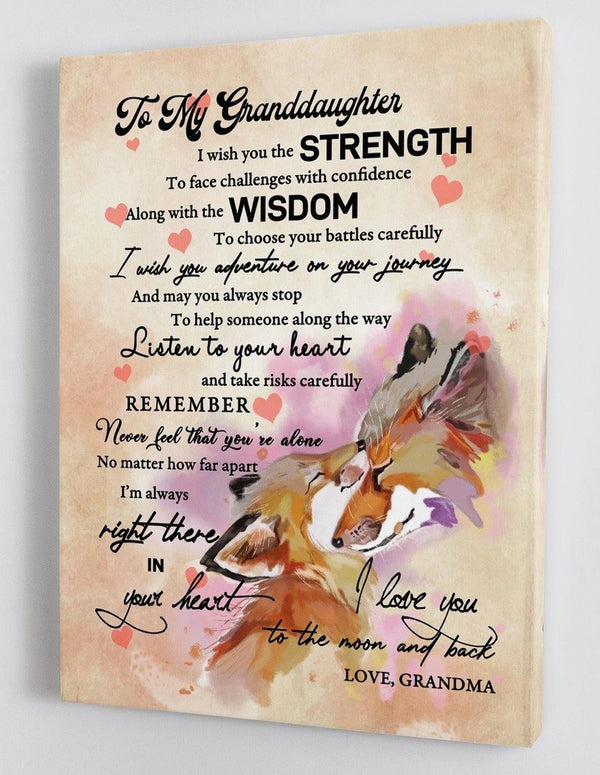 To My Granddaughter
I wish you the STRENGTH
To face challenges with confidence
Along with the WISDOM
To choose your battles carefully
I wish you adventure on your journey
And may you always stop
To help someone along the way
Listen to your heart
and take risks carefully
REMEMBER
Never feel that you're alone
No matter how far apart
I'm always
right there
IN
your heart
I love you
to the moon and back
LOVE, GRANDMA